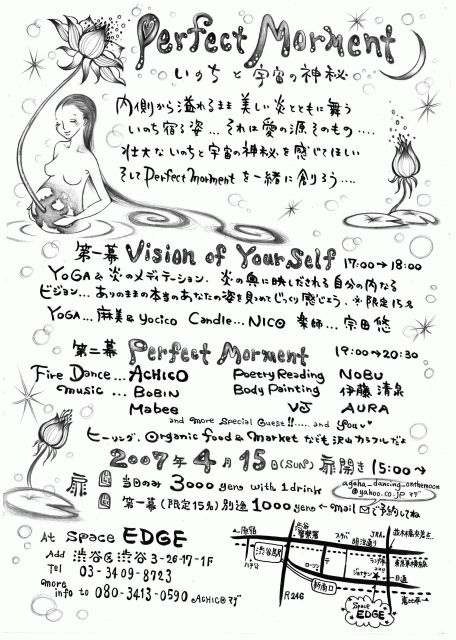 Perfect Morment
いのちと宇宙の神秘
内側から溢れるまま 美しい炎とともに舞う
いのち宿る姿... それは愛の源そのもの....
壮大ないのちと宇宙の神秘を感じてほしい
そしてPerfect Mormentを一緒に創ろう....
第一幕 Vision of YourSelf 17:00→18:00
YOGA & 炎のメディテーション. 炎の奥に映しだされる自分の内なる
ビジョン... ありのままの本当のあなたの姿を見つめてじっくり感じよう. ※限定15名
YOGA... 麻美 & yocico Candle... NICO 楽師... 宇田悠
第二幕 Perfect Morment 19:00→20:30
Fire Dance... ACHICO Poetry Reading NOBU
music... BOBIN Body Painting 伊藤清泉
Mabee VJ AURA
and more Special Guest!!..... and You♥
ヒーリング. Organic food & Market なども沢山カラフルだよ
2007年4月15日(SUN) 扉開き 15:00→
扉 当日のみ 3000yens with 1drink
agaha_dancing_onthemoon
@yahoo.co.jp マデ
第一幕(限定15名)別途1000yens & mail ご予約してね
At Space EDGE
Add 渋谷区渋谷3-26-17-1F
Tel 03-3409-8723
more
info to 080-3413-0590 ACHICOマデ
←原宿
渋谷
警察署
スタバ
明治通り
JRA
並木橋交差点
渋谷駅
ハチ公
ローソン
新南口
R246
歩道
恵比寿→
Space
EDGE